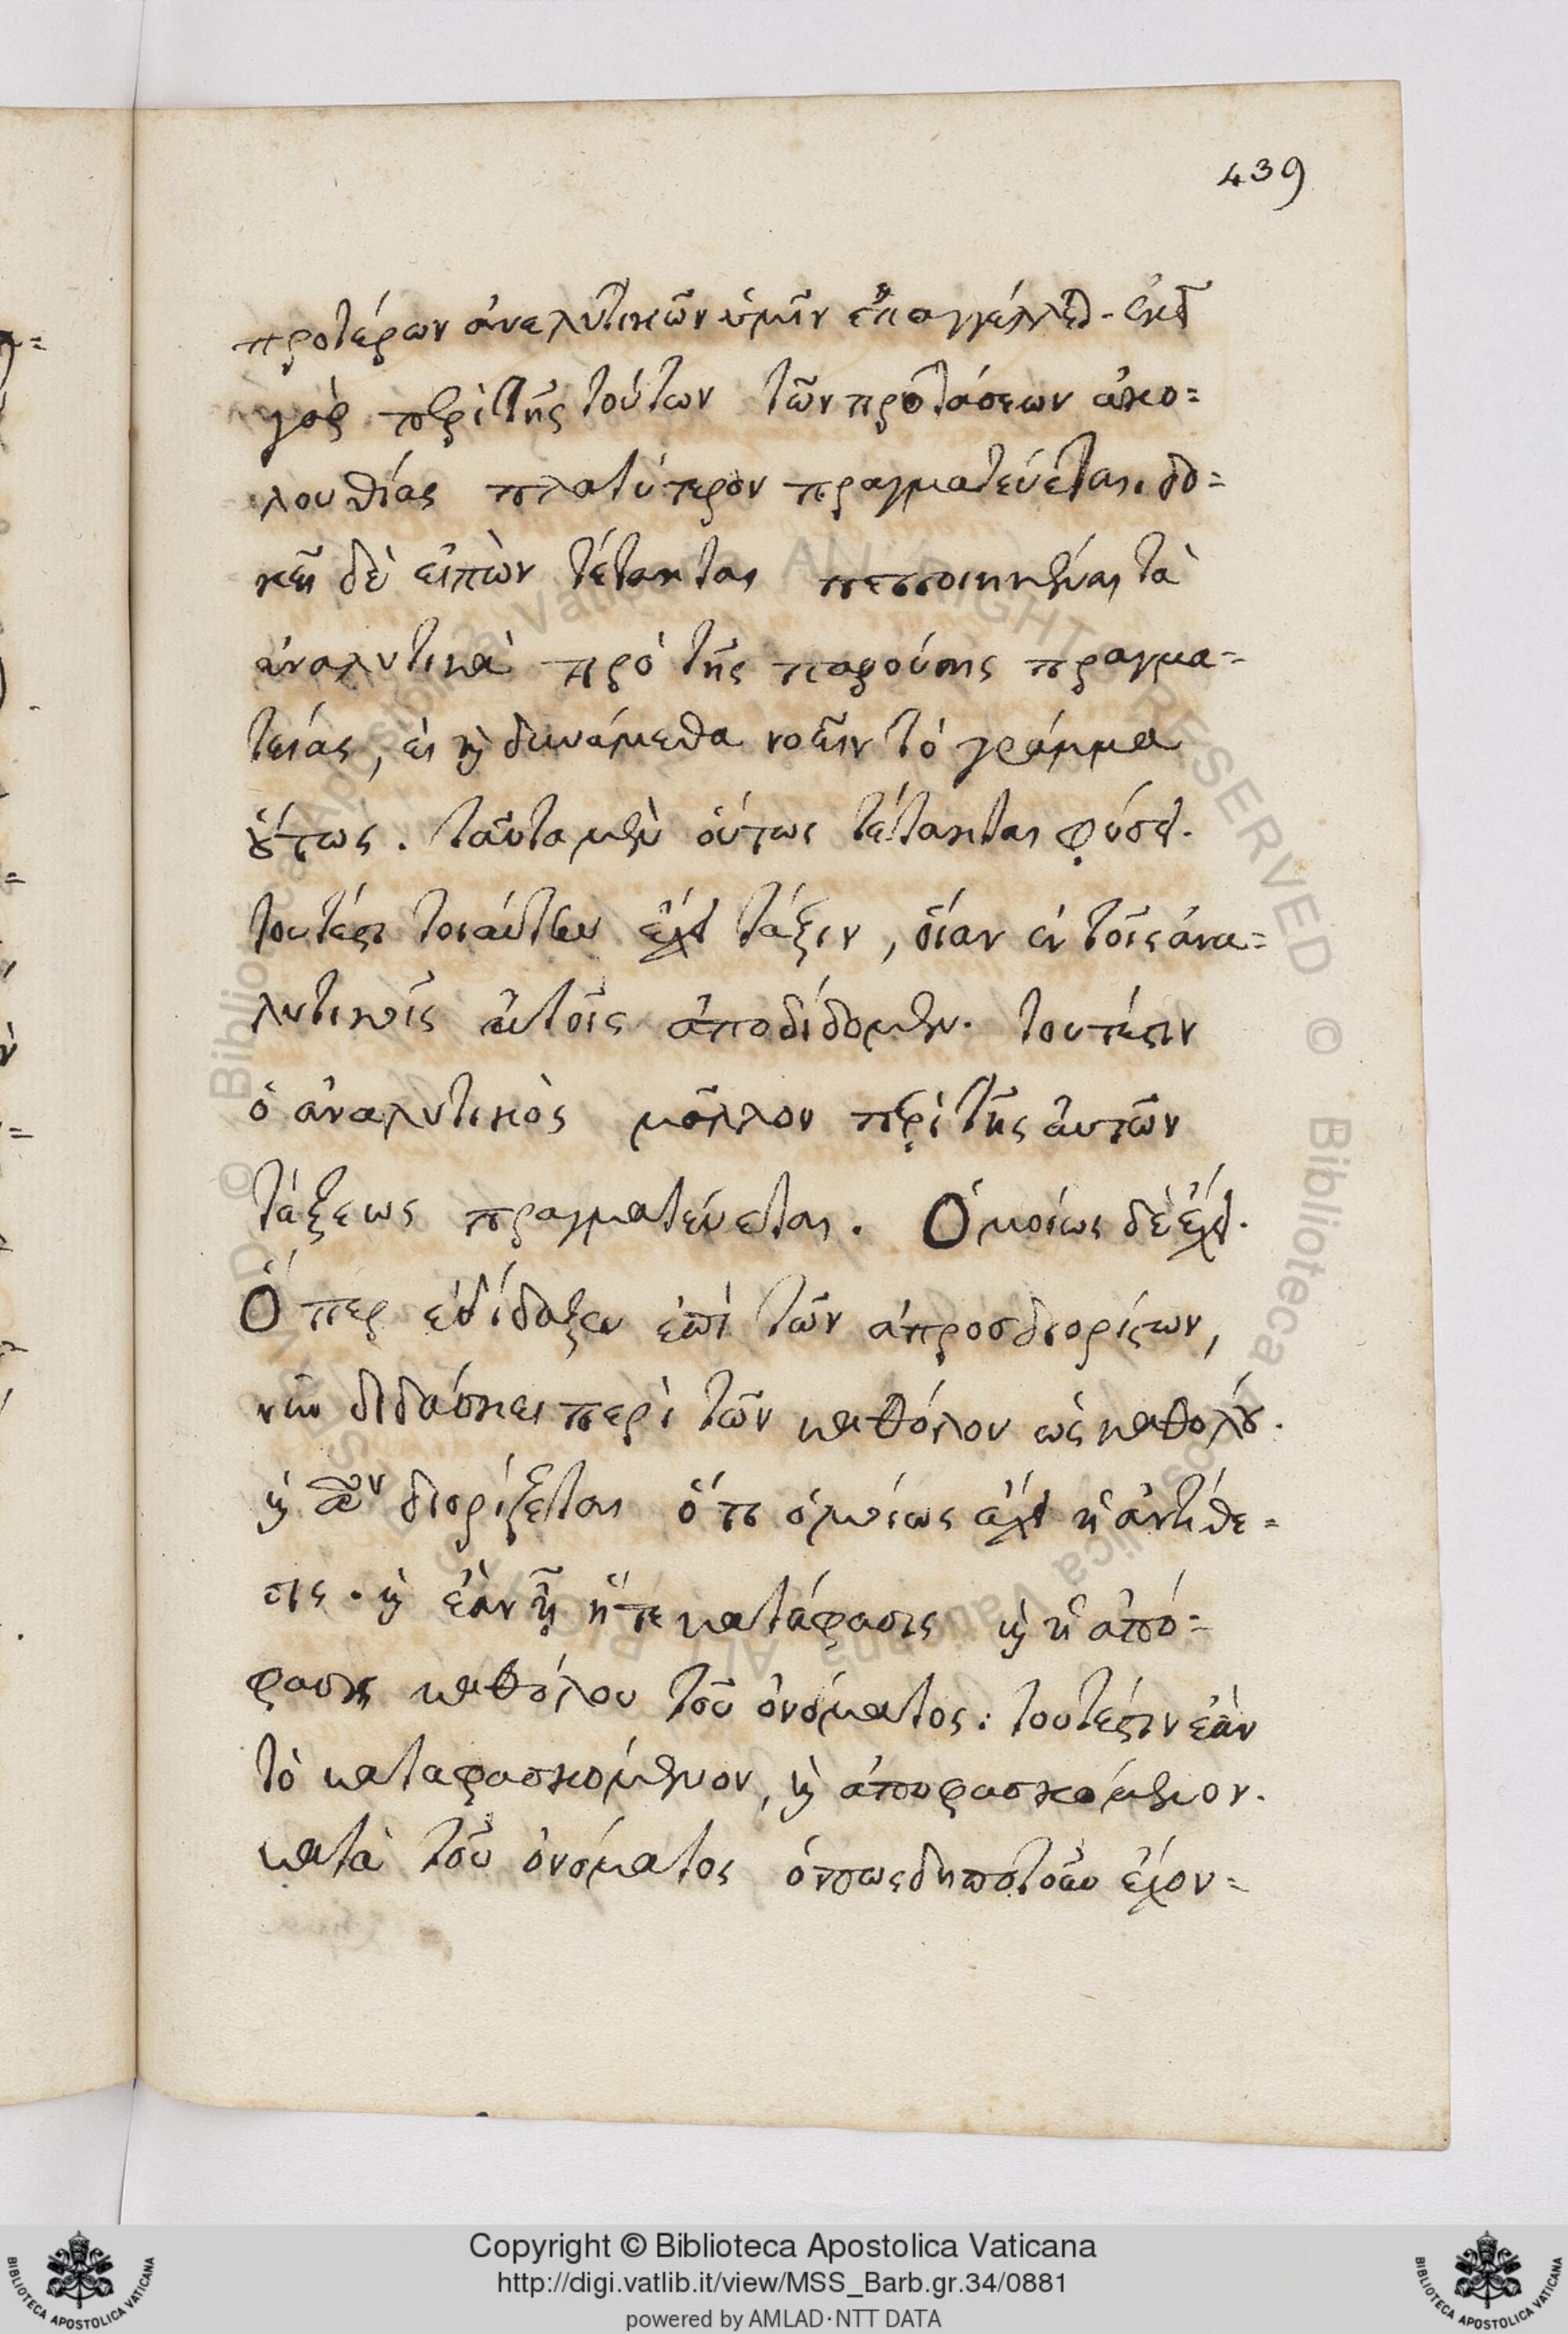 439
προτέρων ἀναλυτικῶν ὑμῖν ἐπαγγέλλει. ἐκεῖ
γὰρ περὶ τῆς τούτων τῶν προτάσεων ἀκο=
λουθίας πλατύτερον πραγματεύεται. δο=
κεῖ δὲ εἰπὼν τέτακται πεποιηκέναι τὰ
ἀναλυτικὰ πρὸ τῆς παρούσης πραγμα=
τείας, εἰ καὶ δυνάμεθα νοεῖν τὸ γράμμα
οὕτως. ταῦτα μὲν οὕτως τέτακται φύσει.
τουτέστι τοιαύτην ἔχει τάξιν, οἵαν ἐν τοῖς ἀνα=
λυτικοῖς αὐτοῖς ἀποδίδομεν. τουτέστιν
ὁ ἀναλυτικὸς μᾶλλον περὶ τῆς αὐτῶν
τάξεως πραγματεύεται. Ὁμοίως δὲ ἔχει.
Ὅπερ ἐδίδαξεν ἐπὶ τῶν ἀπροσδιορίστων,
νῦν διδάσκει περὶ τῶν καθόλου ὡς καθόλου.
καὶ διορίζεται ὅτι ὁμοίως ἔχει ἡ ἀντίθε=
σις. καὶ ἐὰν ᾖ ἥτε κατάφασις καὶ ἡ ἀπό=
φασις καθόλου τοῦ ὀνόματος: τουτέστιν ἐὰν
τὸ καταφασκόμενον, καὶ ἀποφασκόμενον.
κατὰ τοῦ ὀνόματος ὁπωσδηποτοῦν ἔχον=
Copyright © Biblioteca Apostolica Vaticana
http://digi.vatlib.it/view/MSS_Barb.gr.34/0881
powered by AMLAD·NTT DATA